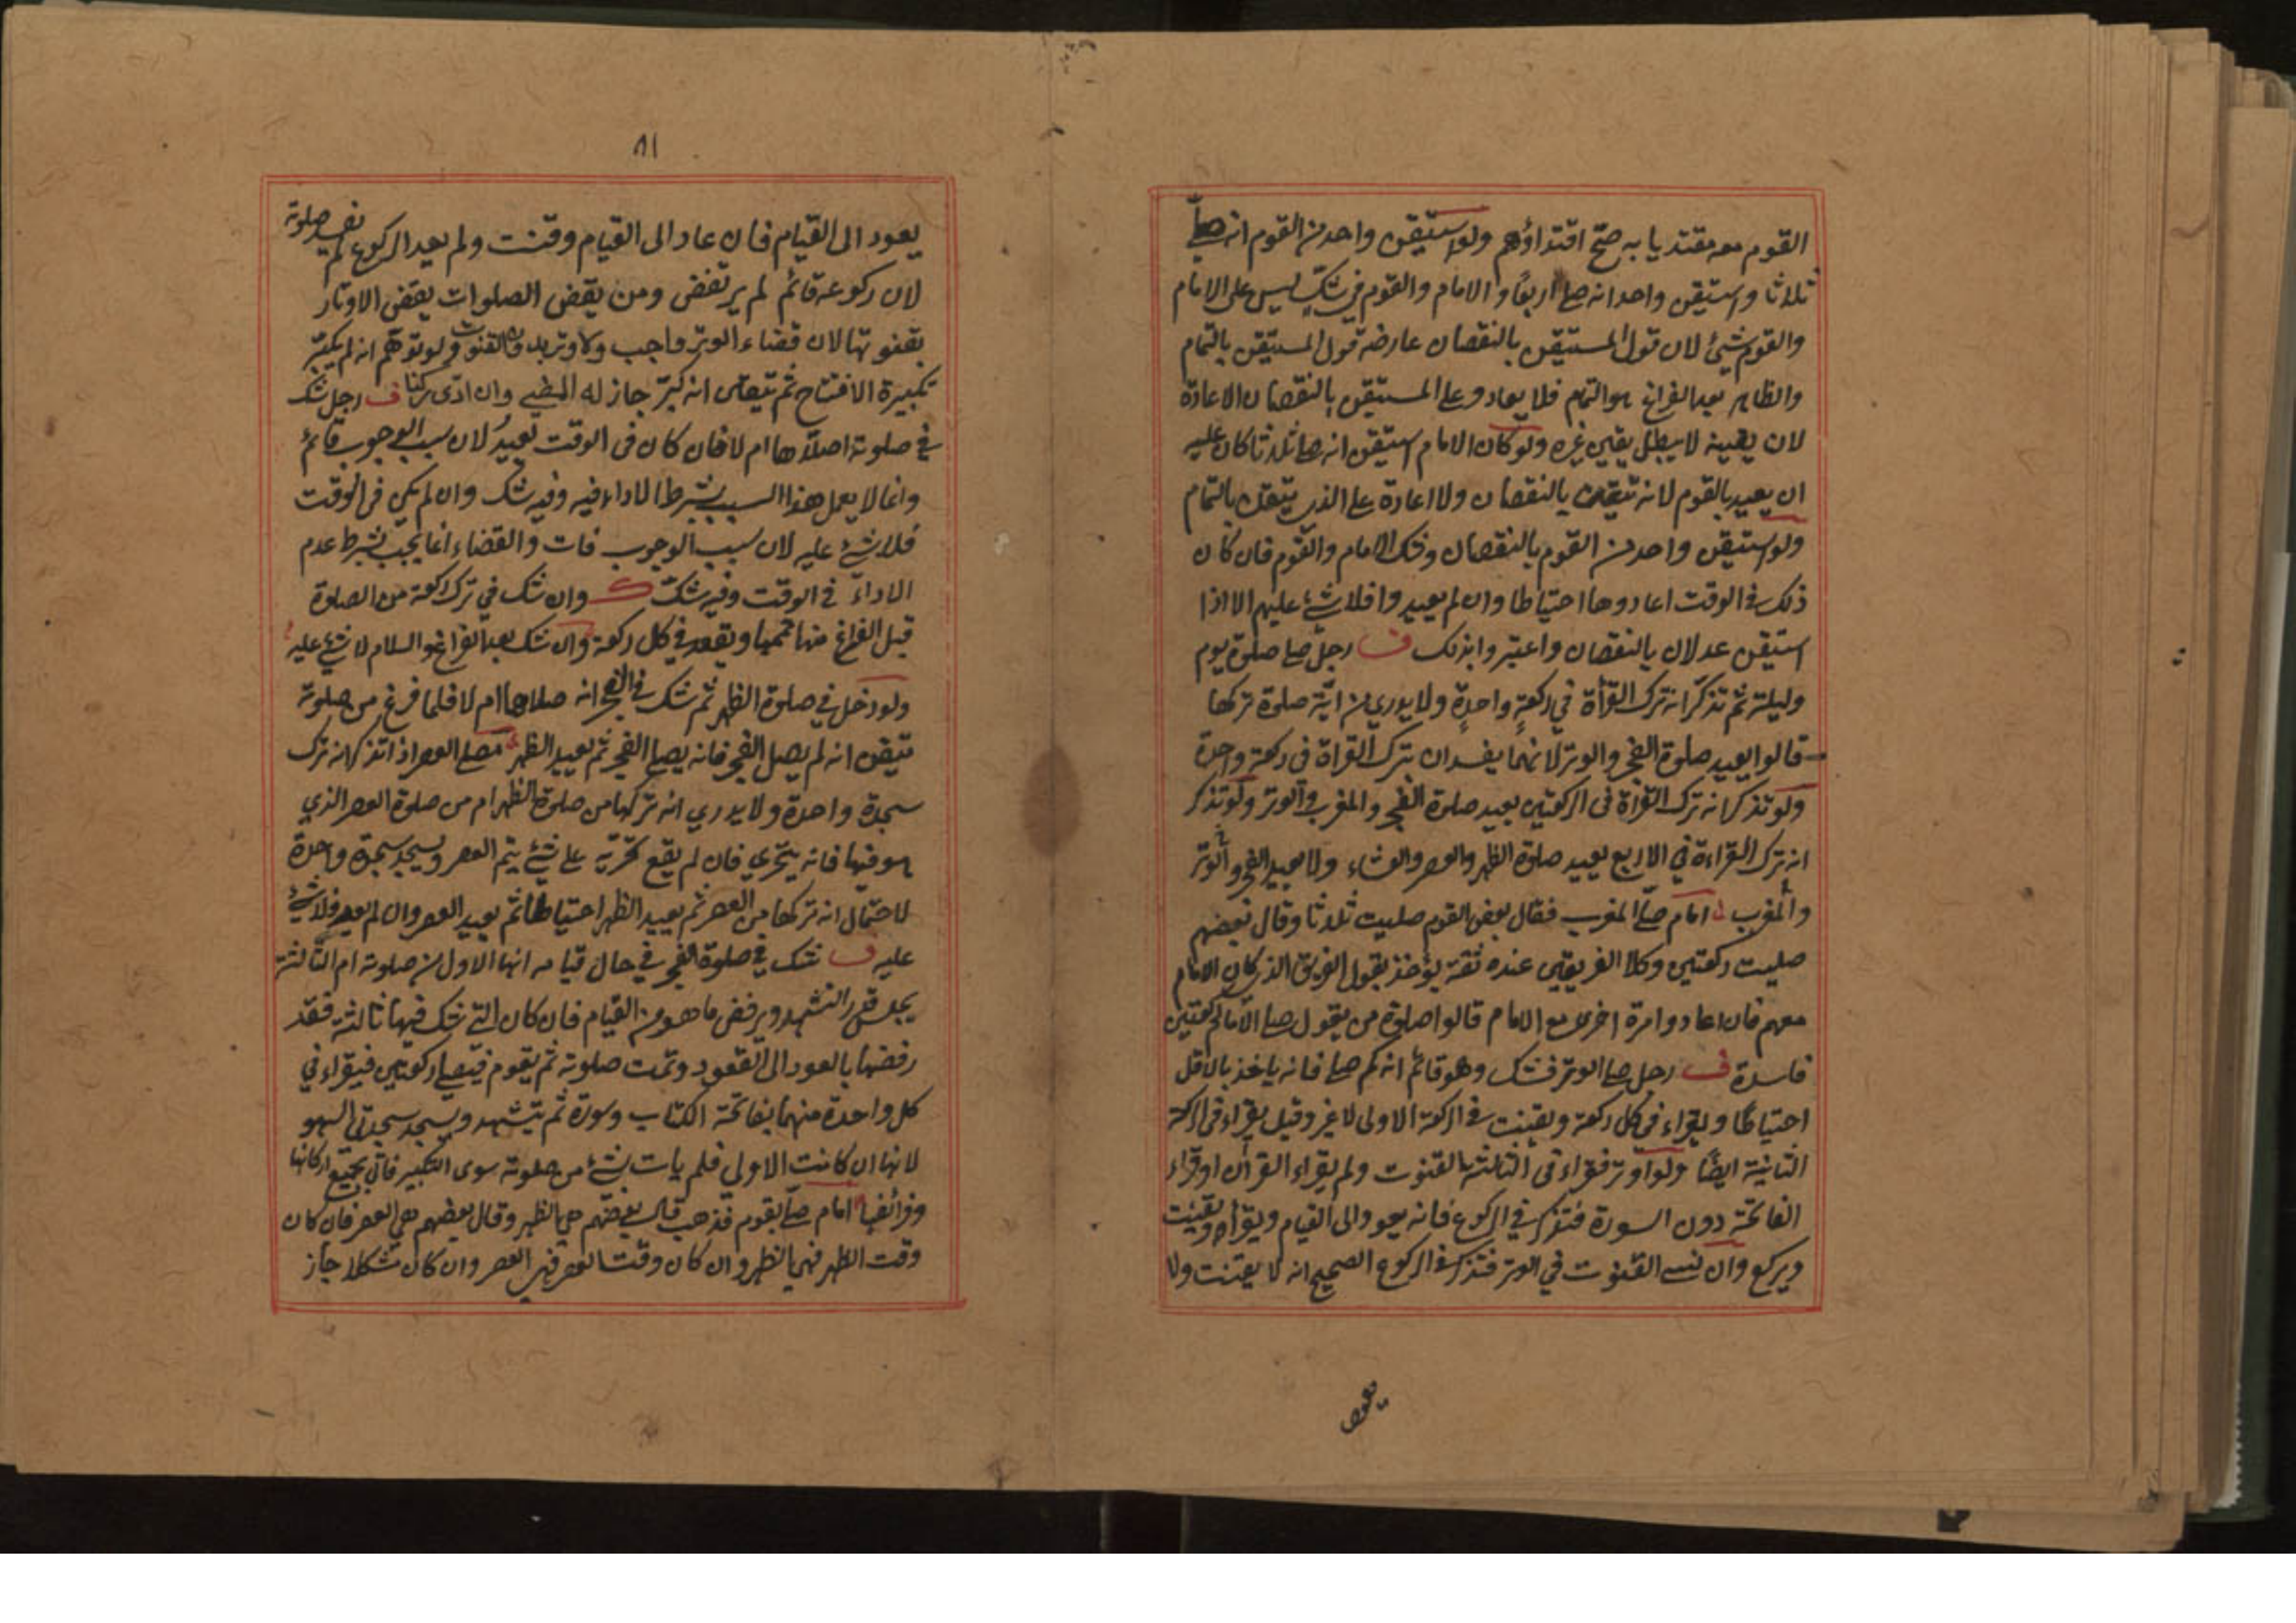 القوم معه مقتديا به صح اقتداؤهم ولو استيقن واحد من القوم انه صلى
ثلاثا واستيقن واحد انه صلى اربعا والامام والقوم في شك ليس على الامام
والقوم شئ لان قول المستيقن بالنقصان عارضه قول المستيقن بالتمام
والظاهر بعد الفراغ هو التمام فلا يعاد وعلى المستيقن بالنقصان الاعادة
لان يقينه لا يبطل يقين غيره ولو كان الامام استيقن انه صلى ثلاثا كان عليه
ان يعيد بالقوم لانه تيقن بالنقصان ولا اعادة على الذي تيقن بالتمام
ولو استيقن واحد من القوم بالنقصان وشك الامام والقوم فان كان
ذلك في الوقت اعادوها احتياطا وان لم يعيدوا فلا شئ عليهم الا اذا
استيقن عدلان بالنقصان واخبروا بذلك ف رجل صلى صلوة يوم
وليلة ثم تذكر انه ترك القرأة في ركعة واحدة ولا يدري من اية صلوة تركها
قالوا يعيد صلوة الفجر والوتر لانهما يفسدان بترك القراة في ركعة واحدة
ولو تذكر انه ترك القراة في الركعتين يعيد صلوة الفجر والمغرب والوتر ولو تذكر
انه ترك القراءة في الاربع يعيد صلوة الظهر والعصر والعشاء ولا يعيد الفجر والوتر
والمغرب امام صلى المغرب فقال بعض القوم صليت ثلاثا وقال بعضهم
صليت ركعتين وكلا الفريقين عنده ثقة يؤخذ بقول الفريق الذي كان الامام
معهم فان اعادوا مرة اخرى مع الامام قالوا صلوة من يقول صلى الامام ركعتين
فاسدة ف رجل صلى الوتر فشك وهو قائم انه كم صلى فانه ياخذ بالاقل
احتياطا ويقراء في كل ركعة ويقنت في الركعة الاولى لا غير وقيل يقراء في الركعة
الثانية ايضا ولو اوتر فقراء في الثالثة القنوت ولم يقراء القرآن او قراء
الفاتحة دون السورة فتذكر في الركوع فانه يعود الى القيام ويقرأ ويقنت
ويركع وان نسي القنوت في الوتر فتذكر في الركوع الصحيح انه لا يقنت ولا
يعود
٨١
يعود الى القيام فان عاد الى القيام وقنت ولم يعد الركوع لم تفسد صلوته
لان ركوعه قائم لم يرتفض ومن يقض الصلوات يقض الاوتار
بقنوتها لان قضاء الوتر واجب ولا وتر بدون القنوت ولو توهم انه لم يكبر
تكبيرة الافتتاح ثم تيقن انه كبر جاز له المضي وان ادى ركنا ف رجل شك
في صلوته اصلاها ام لا فان كان في الوقت يعيد لان سبب الوجوب قائم
وانما لا يعمل هذا السبب بشرط الاداء فيه وفيه شك وان لم يكن في الوقت
فلا شئ عليه لان سبب الوجوب فات والقضاء انما يجب بشرط عدم
الاداء في الوقت وفيه شك وان شك في ترك ركعة من الصلوة
قبل الفراغ منها تممها ويقعد في كل ركعة وان شك بعد الفراغ والسلام لا شئ عليه
ولو دخل في صلوة الظهر ثم شك في الفجر انه صلاها ام لا فلما فرغ من صلوته
تيقن انه لم يصل الفجر فانه يصلي الفجر ثم يعيد الظهر مصلي العصر اذا تذكر انه ترك
سجدة واحدة ولا يدري انه تركها من صلوة الظهر ام من صلوة العصر الذي
هو فيها فانه يتحري فان لم يقع تحريه على شئ يتم العصر ويسجد سجدة واحدة
لاحتمال انه تركها من العصر ثم يعيد الظهر احتياطا ثم يعيد العصر وان لم يعد فلا شئ
عليه ف شك في صلوة الفجر في حال قيامه انها الاولى من صلوته ام الثالثة
يجلس قدر التشهد ويرفض ما هو من القيام فان كان التي شك فيها ثالثة فقد
رفضها بالعود الى القعود وتمت صلوته ثم يقوم فيصلي ركعتين فيقراء في
كل واحدة منهما بفاتحة الكتاب وسورة ثم يتشهد ويسجد سجدتي السهو
لانها ان كانت الاولى فلم يات بشئ من صلوته سوى التكبير فاتى بجميع اركانها
وفرائضها امام صلى بقوم فذهب قال بعضهم هي الظهر وقال بعضهم هي العصر فان كان
وقت الظهر فهي الظهر وان كان وقت العصر فهي العصر وان كان مشكلا جاز